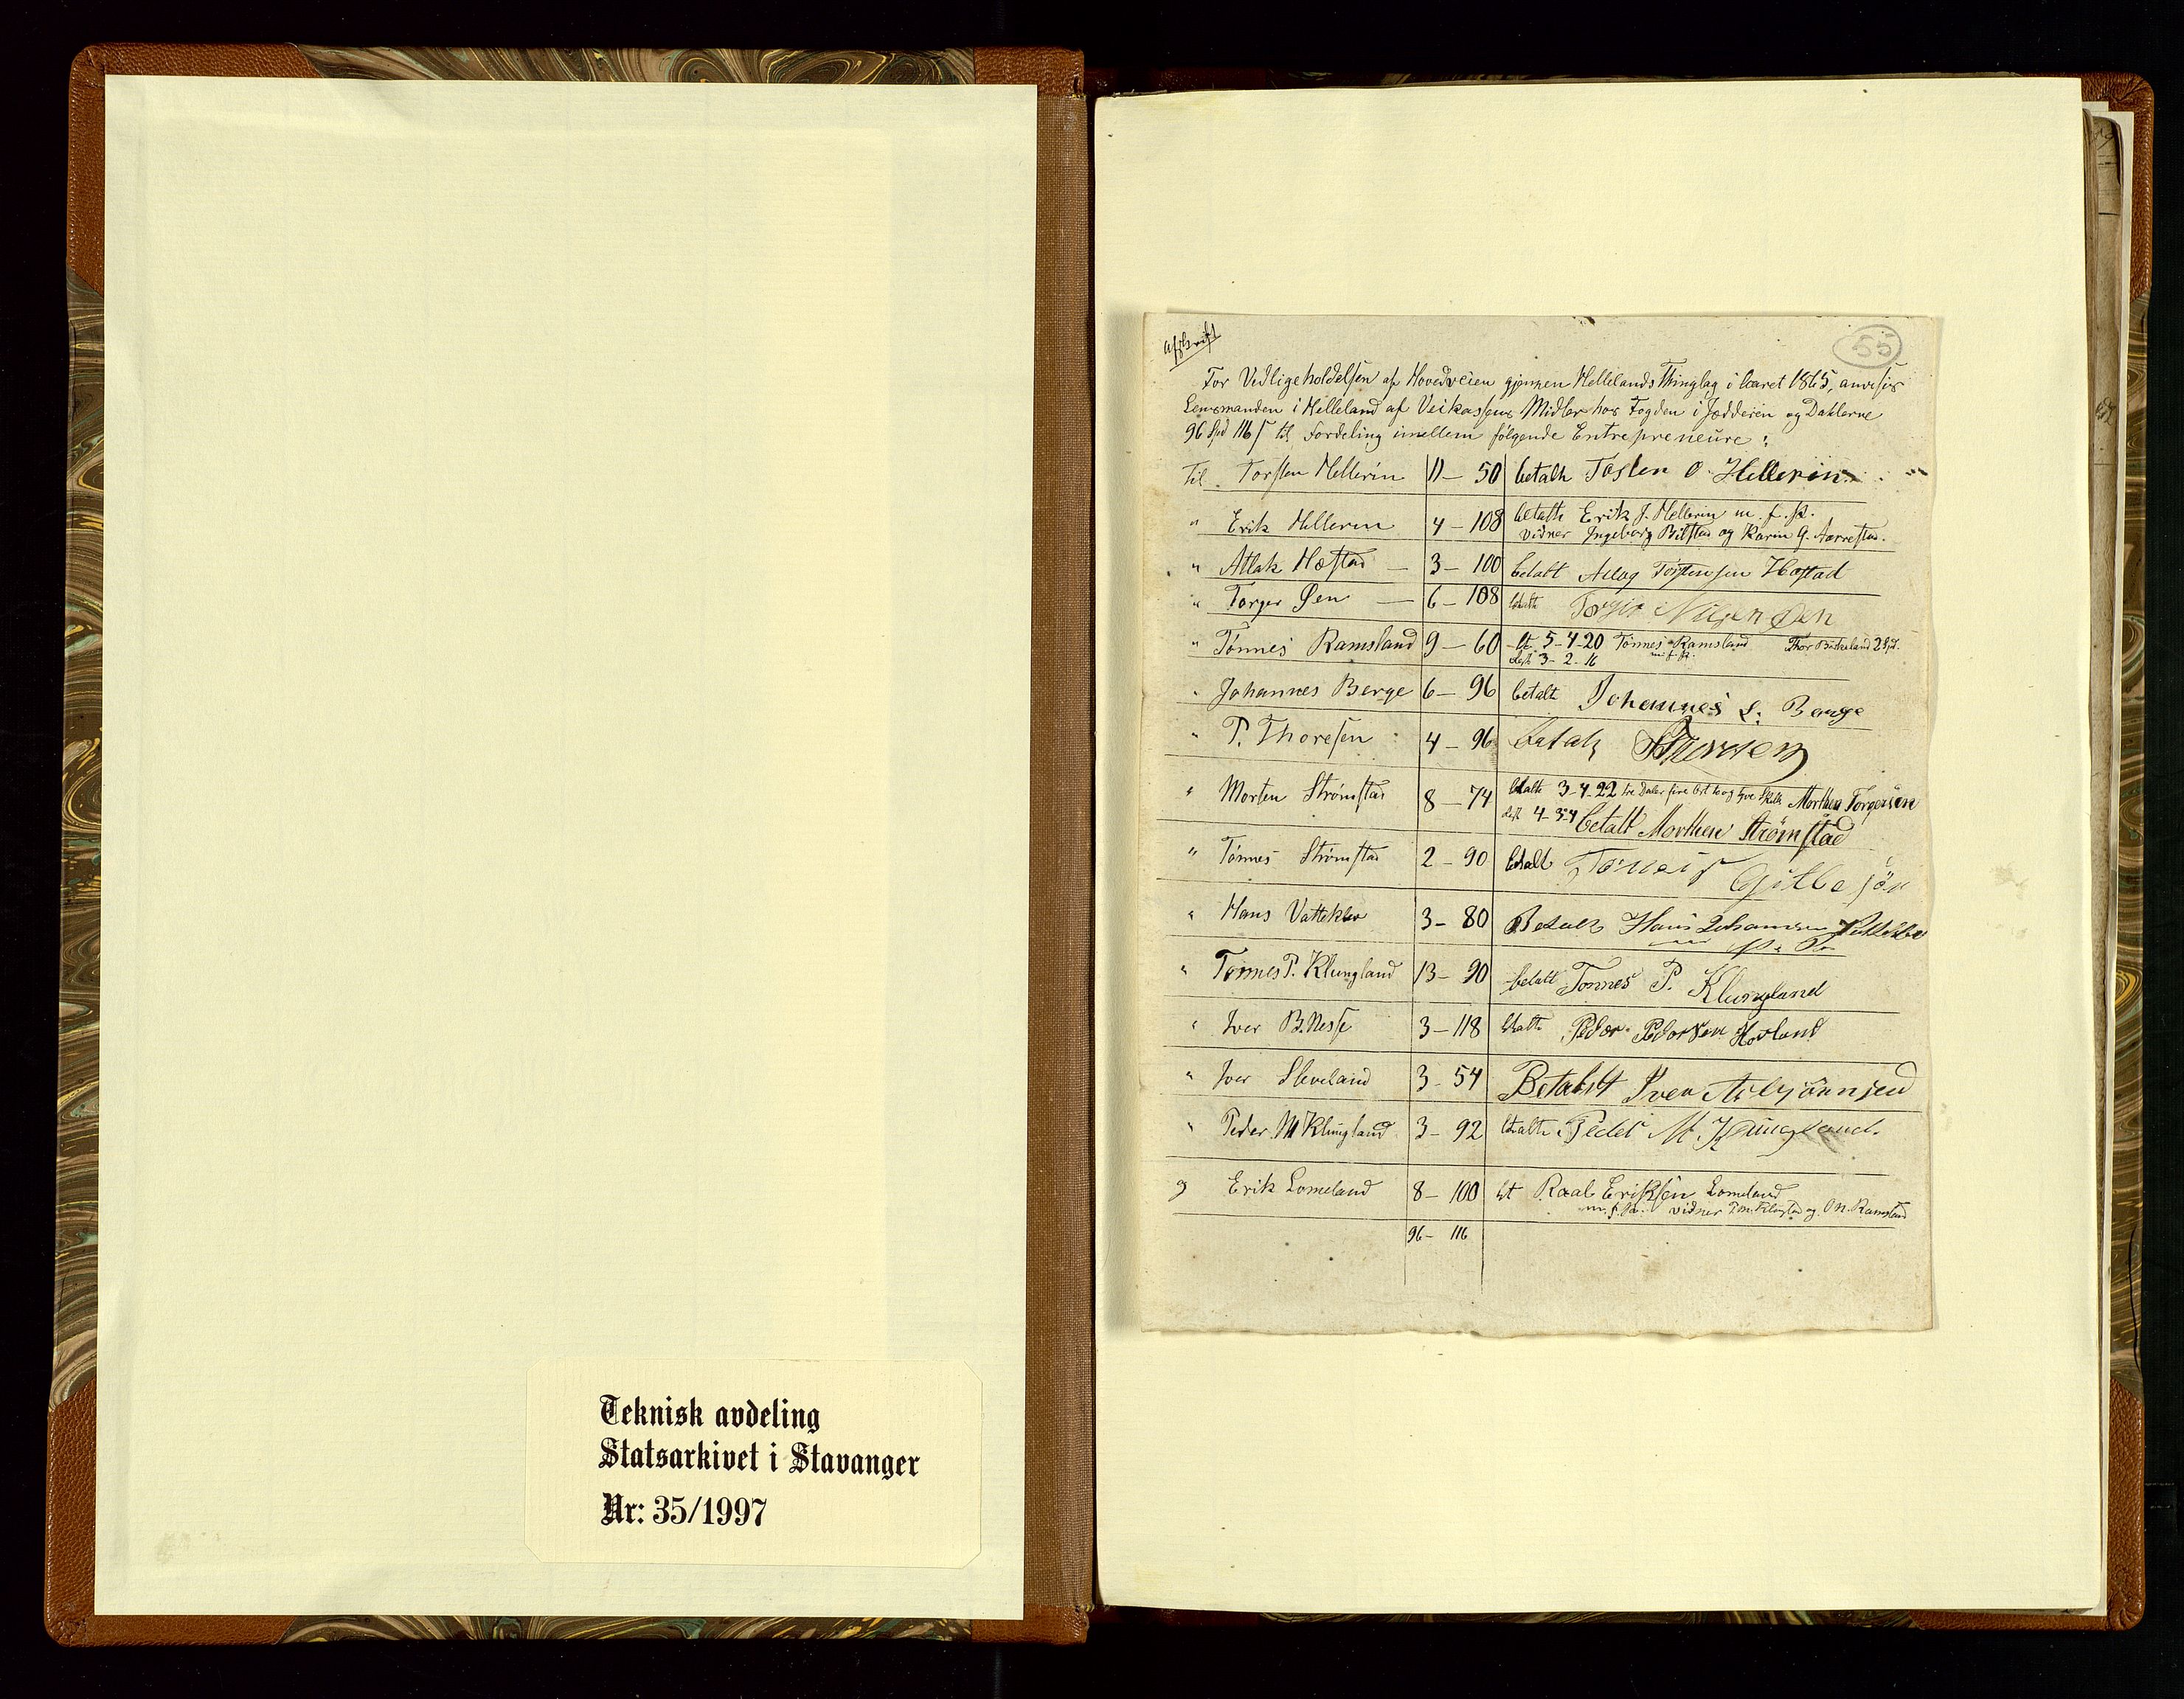 Teknisk avdeling
Statsarkivet i Stavanger
Nr: 35/1997
Afskrift
55
For Vedligeholdelsen af Hovedveien gjennem Hellelands Thinglag i Aaret 1865, anvises
Lensmanden i Helleland af Veikassens Midler hos Fogden i Jædderen og Dalerne
96 Spd 116 ß til Fordeling imellem følgende Entrepreneure:
Til Torsten Hellerin 11 - 50 betalt Tosten O. Hellerin
" Erik Helleren 4 - 108 betalt Erik J. Hellerin m. f. P.
vidner Ingeborg Bilstad og Karin G. Aarrestad.
" Atlak Hæstad - 3 - 100 betalt Atlag Torstensen Hæstad
" Torger Øen - 6 - 108 betalt Torger Nilsen Øen
" Tønnes Ramsland 9 - 60 bt. 5-4-20 Tønnes Ramsland Thor 2 Spd.
m. f. P.
3-2-16
" Johannes Berge 6 - 96 betalt Johannes S. Berge
" P. Thoresen 4 - 96 betalt PThoresen
" Morten Strømstad 8 - 74 betalt 3-4-22 tre Daler fire Ort to og tyve Skill Morthen Torgersen
4-3-4 betalt Morthen Strømstad
" Tønnes Strømstad 2 - 90 betalt Tønnes
" Hans Vatteklev 3 - 80 Betalt Hans Johannsen Vatteklev
m P. P.
" Tønnes P. Klungland 13 - 90 betalt Tonnes P. Klungland
" Iver B. Nesse 3 - 118 betalt Peder Pedersen Hovland
" Iver Sleveland 3 - 54 Betaldt Iver Asbjønnsen
" Peder M Klungland 3 - 92 betalt Peder M. Klungland.
" Erik Lomeland 8 - 100 bt Eriksen Lomeland
m. f. P. vidner og O. M. Ramsland
96 - 116